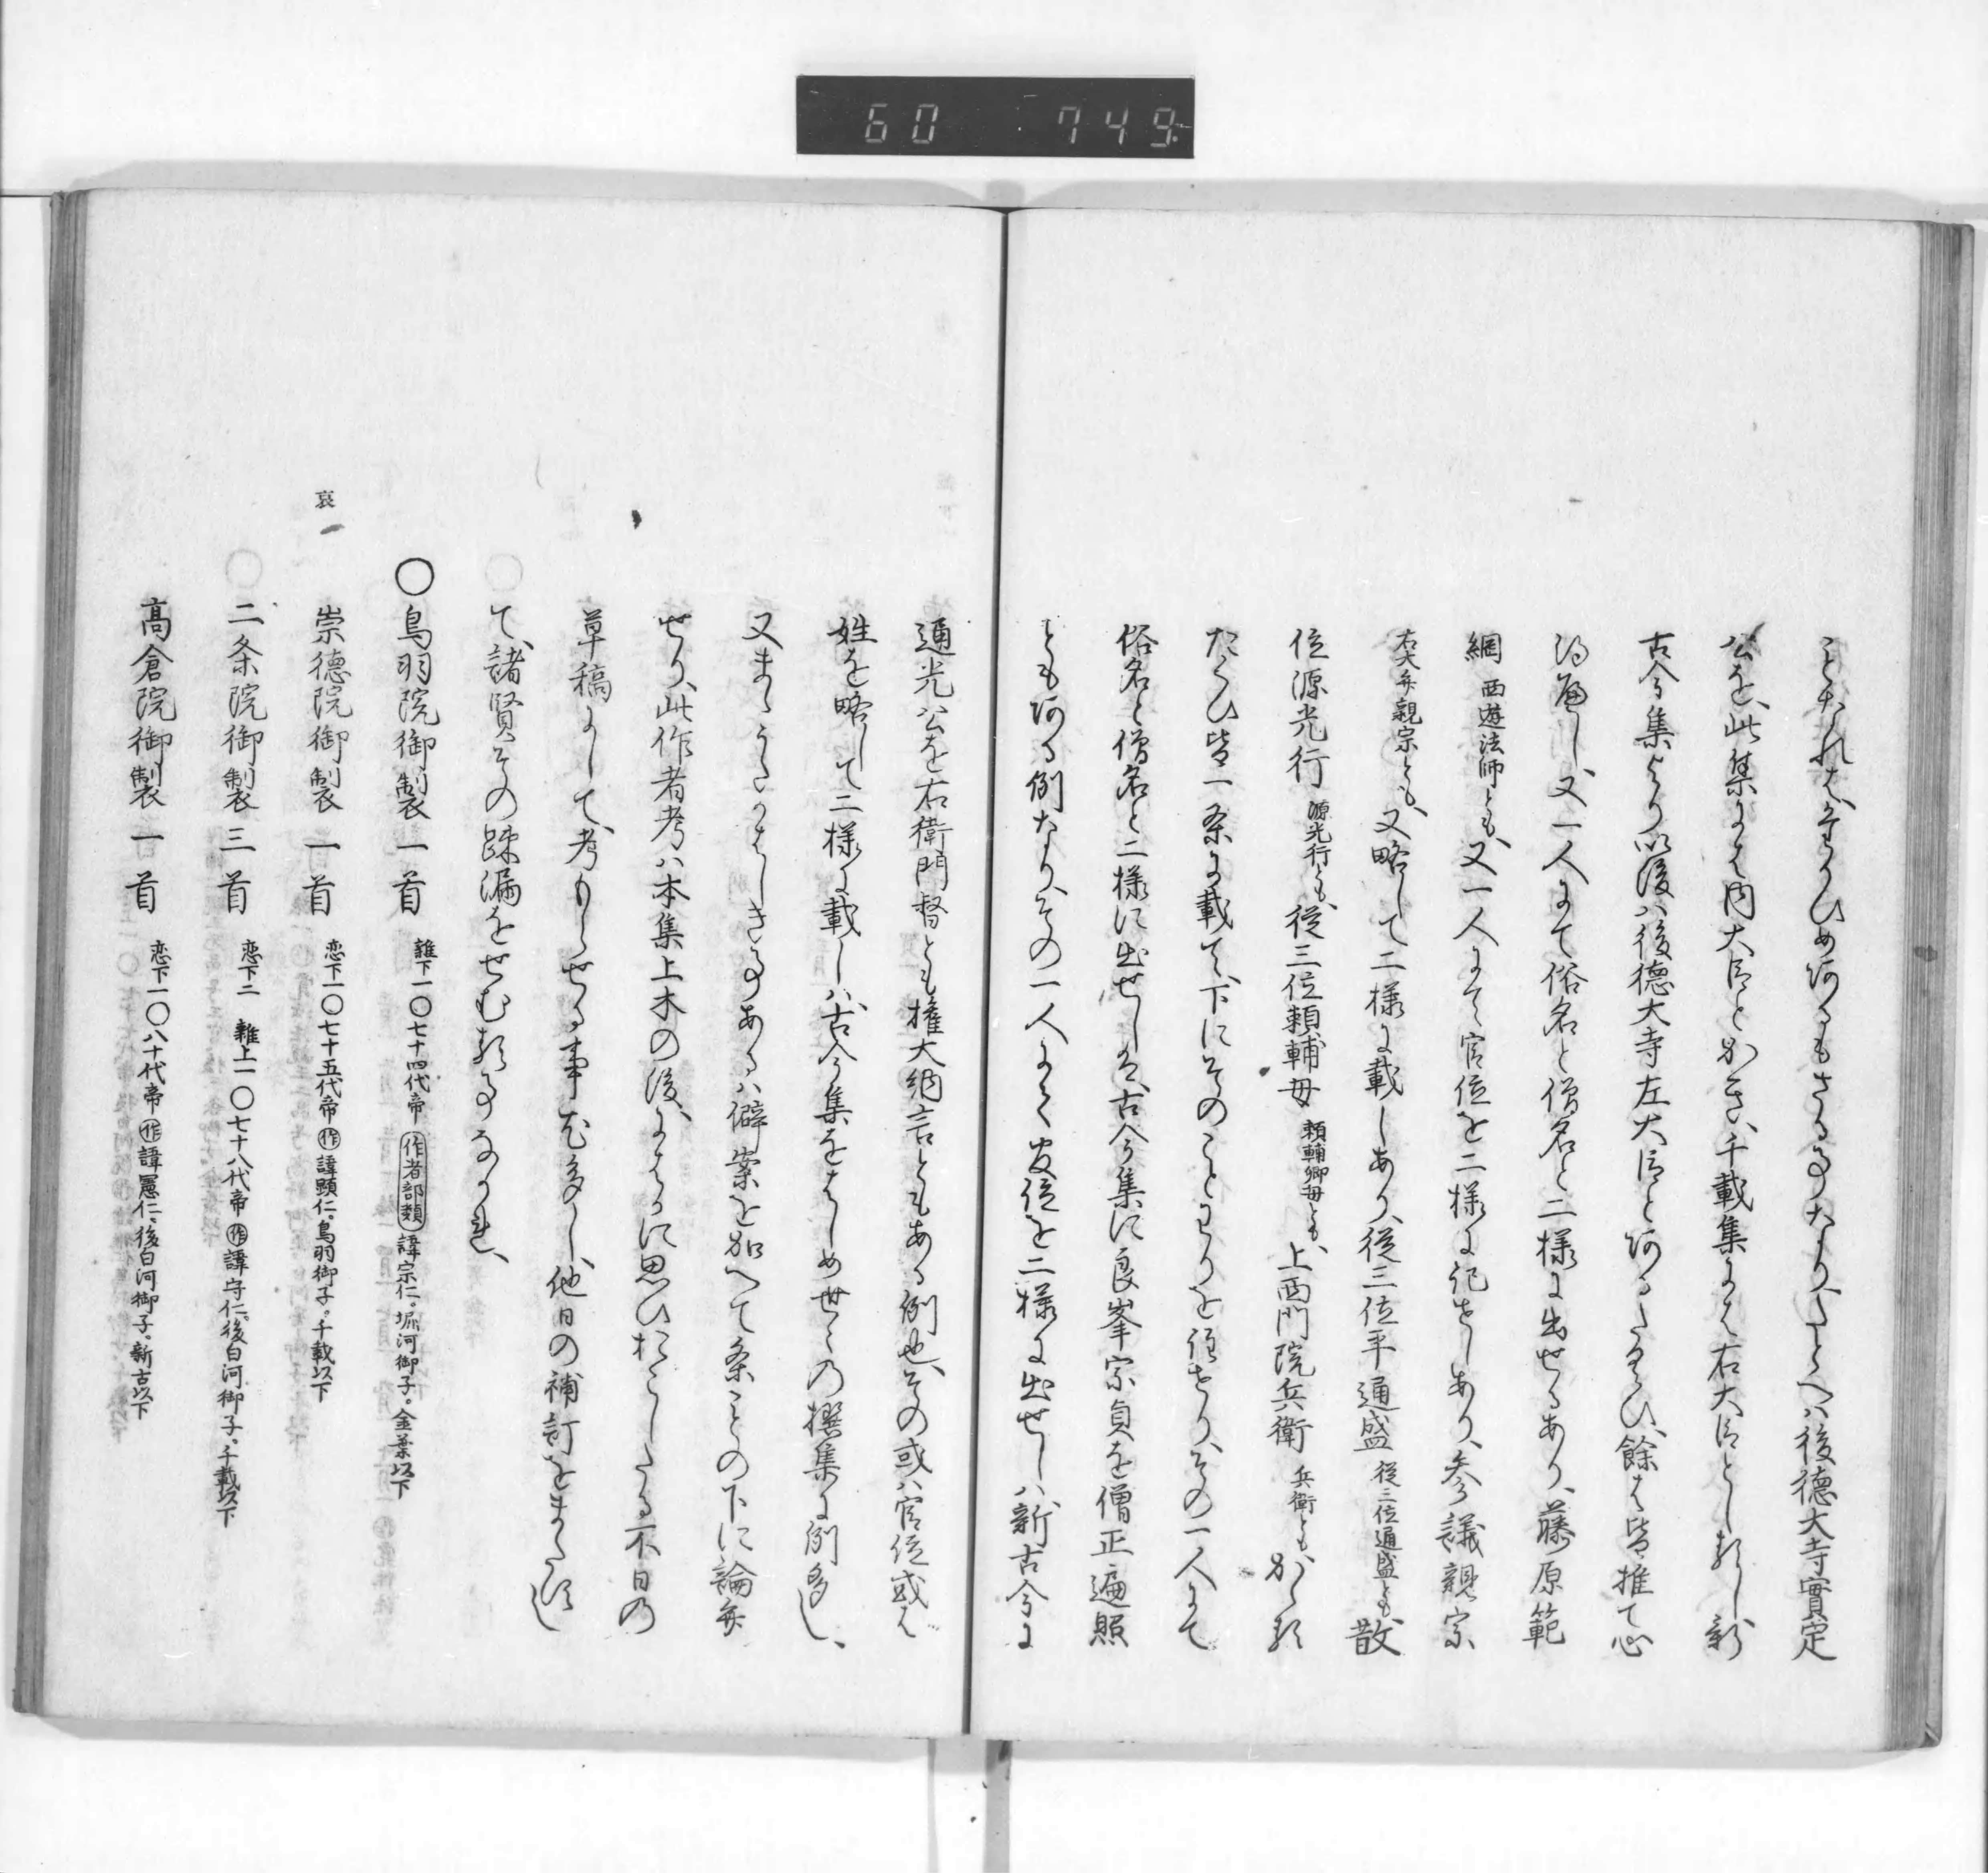 60 749
ことなれはかうかひめ河もさる事なりたとへハ後徳大寺實定
公を、此集にては内大臣とかき、千載集にては右大臣としるし新
古今集より以後ハ後徳大寺左大臣と河るたくひ餘は皆推て心
得へし、又一人にて俗名と僧名と二様に出せるあり、藤原範
綱 西遊法師とも、又一人にて官位を二様に記せしあり、参議親宗
右大弁親宗とも、又略して二様に載しあり、従三位平通盛 従三位通盛とも、散
位源光行 源光行とも、従三位頼輔母 頼輔卿母とも、上西門院兵衛 兵衛とも、かける
たくひ皆一条に載て、下にそのことわりを注せり、その一人にて
俗名と僧名と二様に出せしは、古今集に良峯宗貞を僧正遍照
とも河る例なり、その一人にて官位を二様に出せしハ新古今に
通光公を右衛門督とも権大納言ともある例也、その或ハ官位或は
姓を略して二様に載しハ、古今集をはしめ世々の撰集に例多し、
又まきらはしき事あるハ僻案を加へて条ことの下に論弁
せり、此作者考ハ本集上木の後、にはかに思ひおこしたる不日の
草稿にして、考もらせる事尤多し、他日の補訂をまたむ
て、諸賢その疎漏をせむる事なかれ、
〇鳥羽院御製 一首 雑下一〇七十四代帝 作者部類 諱宗仁。堀河御子。金葉以下
哀一
崇徳院御製 一首 恋下一〇七十五代帝 作 諱顕仁。鳥羽御子。千載以下
二条院御製 三首 恋下二 雑上一〇七十八代帝 作 諱守仁。後白河御子。千載以下
高倉院御製 一首 恋下一〇八十代帝 作 諱憲仁。後白河御子。新古以下